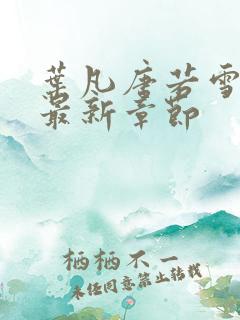 葉凡唐若雪
最新章節
栖栖不一
未经同意禁止转载